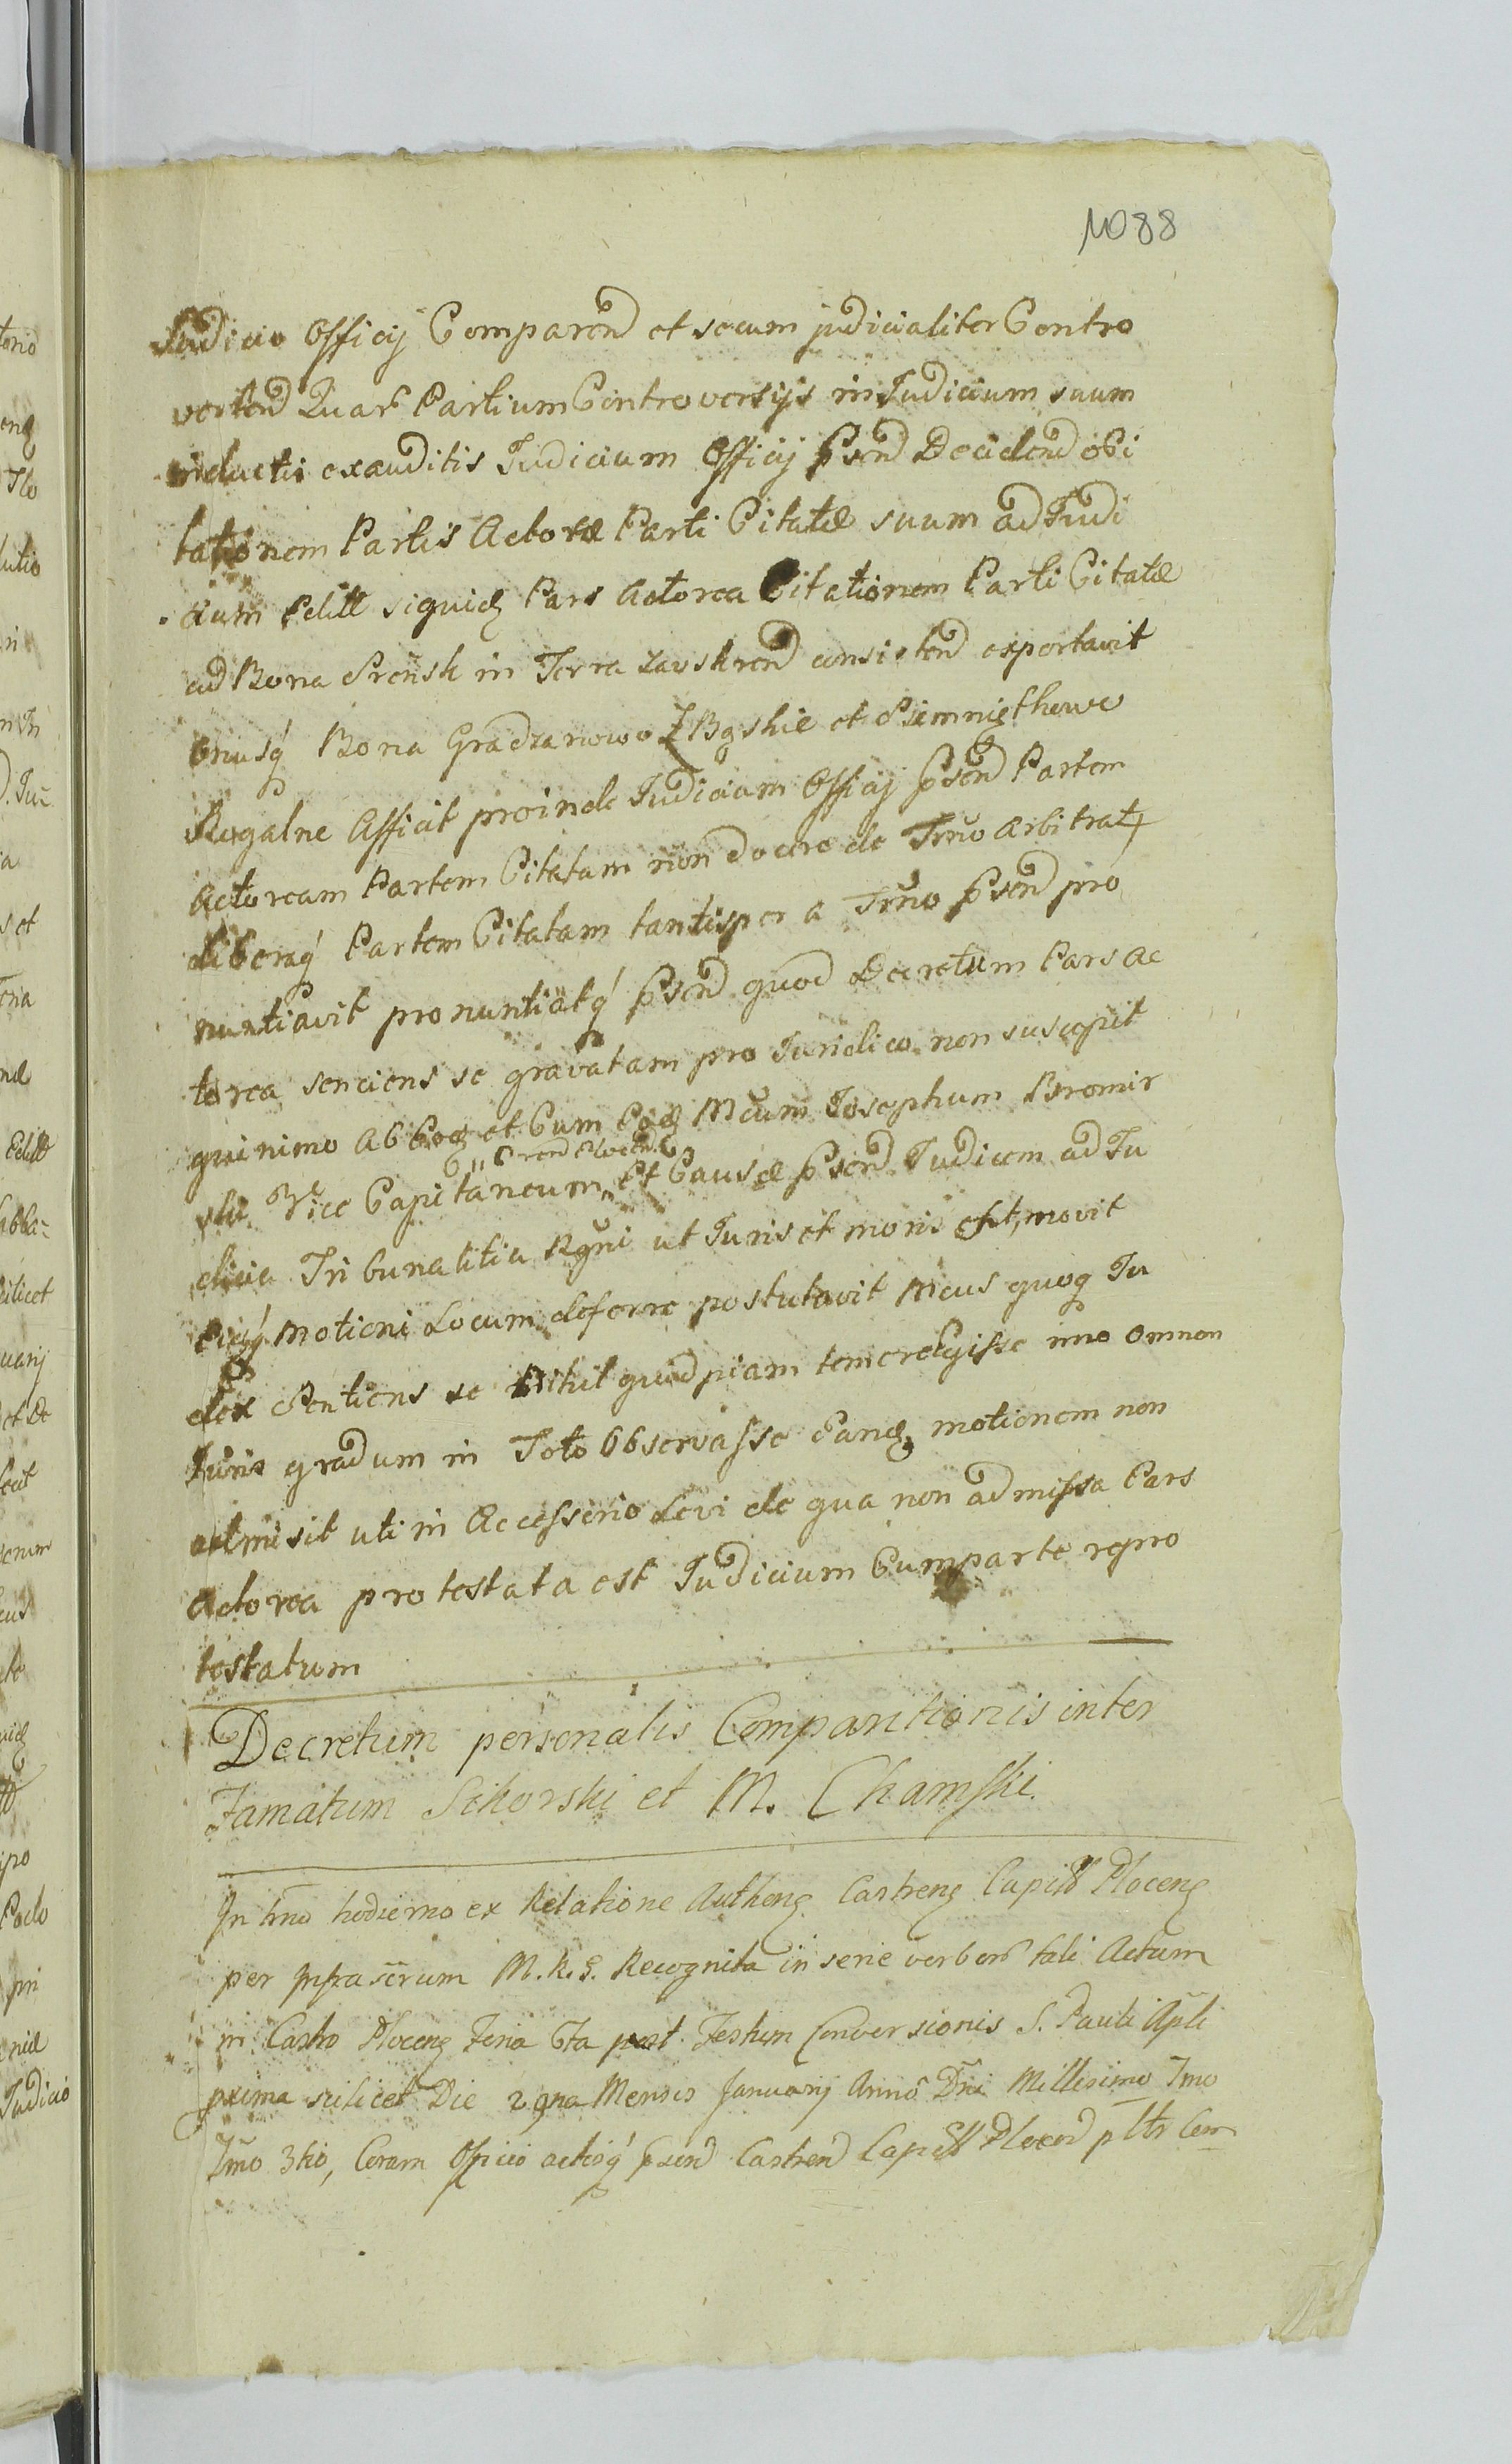 1088
Judicio Officij Comparend et secum judicialiter Contro
vertend Quar Partium Controversijs in Judicium suum
inductis exauditis Judicium Officij psend Decidend Ci
tationem Partis Actoreæ Parti Citatæ suum ad Judi
cium siquid Pars Actorea Citationem Parti Citatæ
ad Bona Srensk in Terra Zavskrend consistend exportavit
onusq Bona Gradzanowo ZBgskie et Siemnigthowo
Rogalne Afficit proinde Judicium Officij psend Partem
Actoream Partem Citatam non docere de Trno Arbitrat
liberaq Partem Citatam tantisper a Trno psend pro
nuntiavit pronuntiatq psend quod Decretum Pars Ac
torea senciens se gravatam pro Juridico non suscepit
quinimo ab et Cum Mcum Josephum Bromir
ski Vice Capitaneum et Causæ psend Judicem ad Ju
dicia Tribunalitia Rgni ut Juris et moris est, movit
motioni Locum deferre postulavit Mcus quoq Ju
dex Sentiens se Nihil quidpiam temere egisse imo omnem
Juris gradum in Toto Observasse Eand motionem non
admisit uti in Accessorio Levi de qua non admissa Pars
Actorea protestata est Judicium Cum parte repro
testatum
Decretum personalis Comparitionis inter
Famatum Sikorski et M. Chamski.
In trno hodierno ex Relatione Autheng Castreng Capitl Ploceng
per Infrascrum M. R. G. Recognita in serie verbor tali Actum
in Castro Ploceng Feria 6ta post Festum Conversionis S. Pauli Apli
pxima scilicet Die 29na Mensis Januarij Anno Dni Millesimo 7mo
7mo 3tio, Coram Officio actisq psend Castrend Capitl Plocend